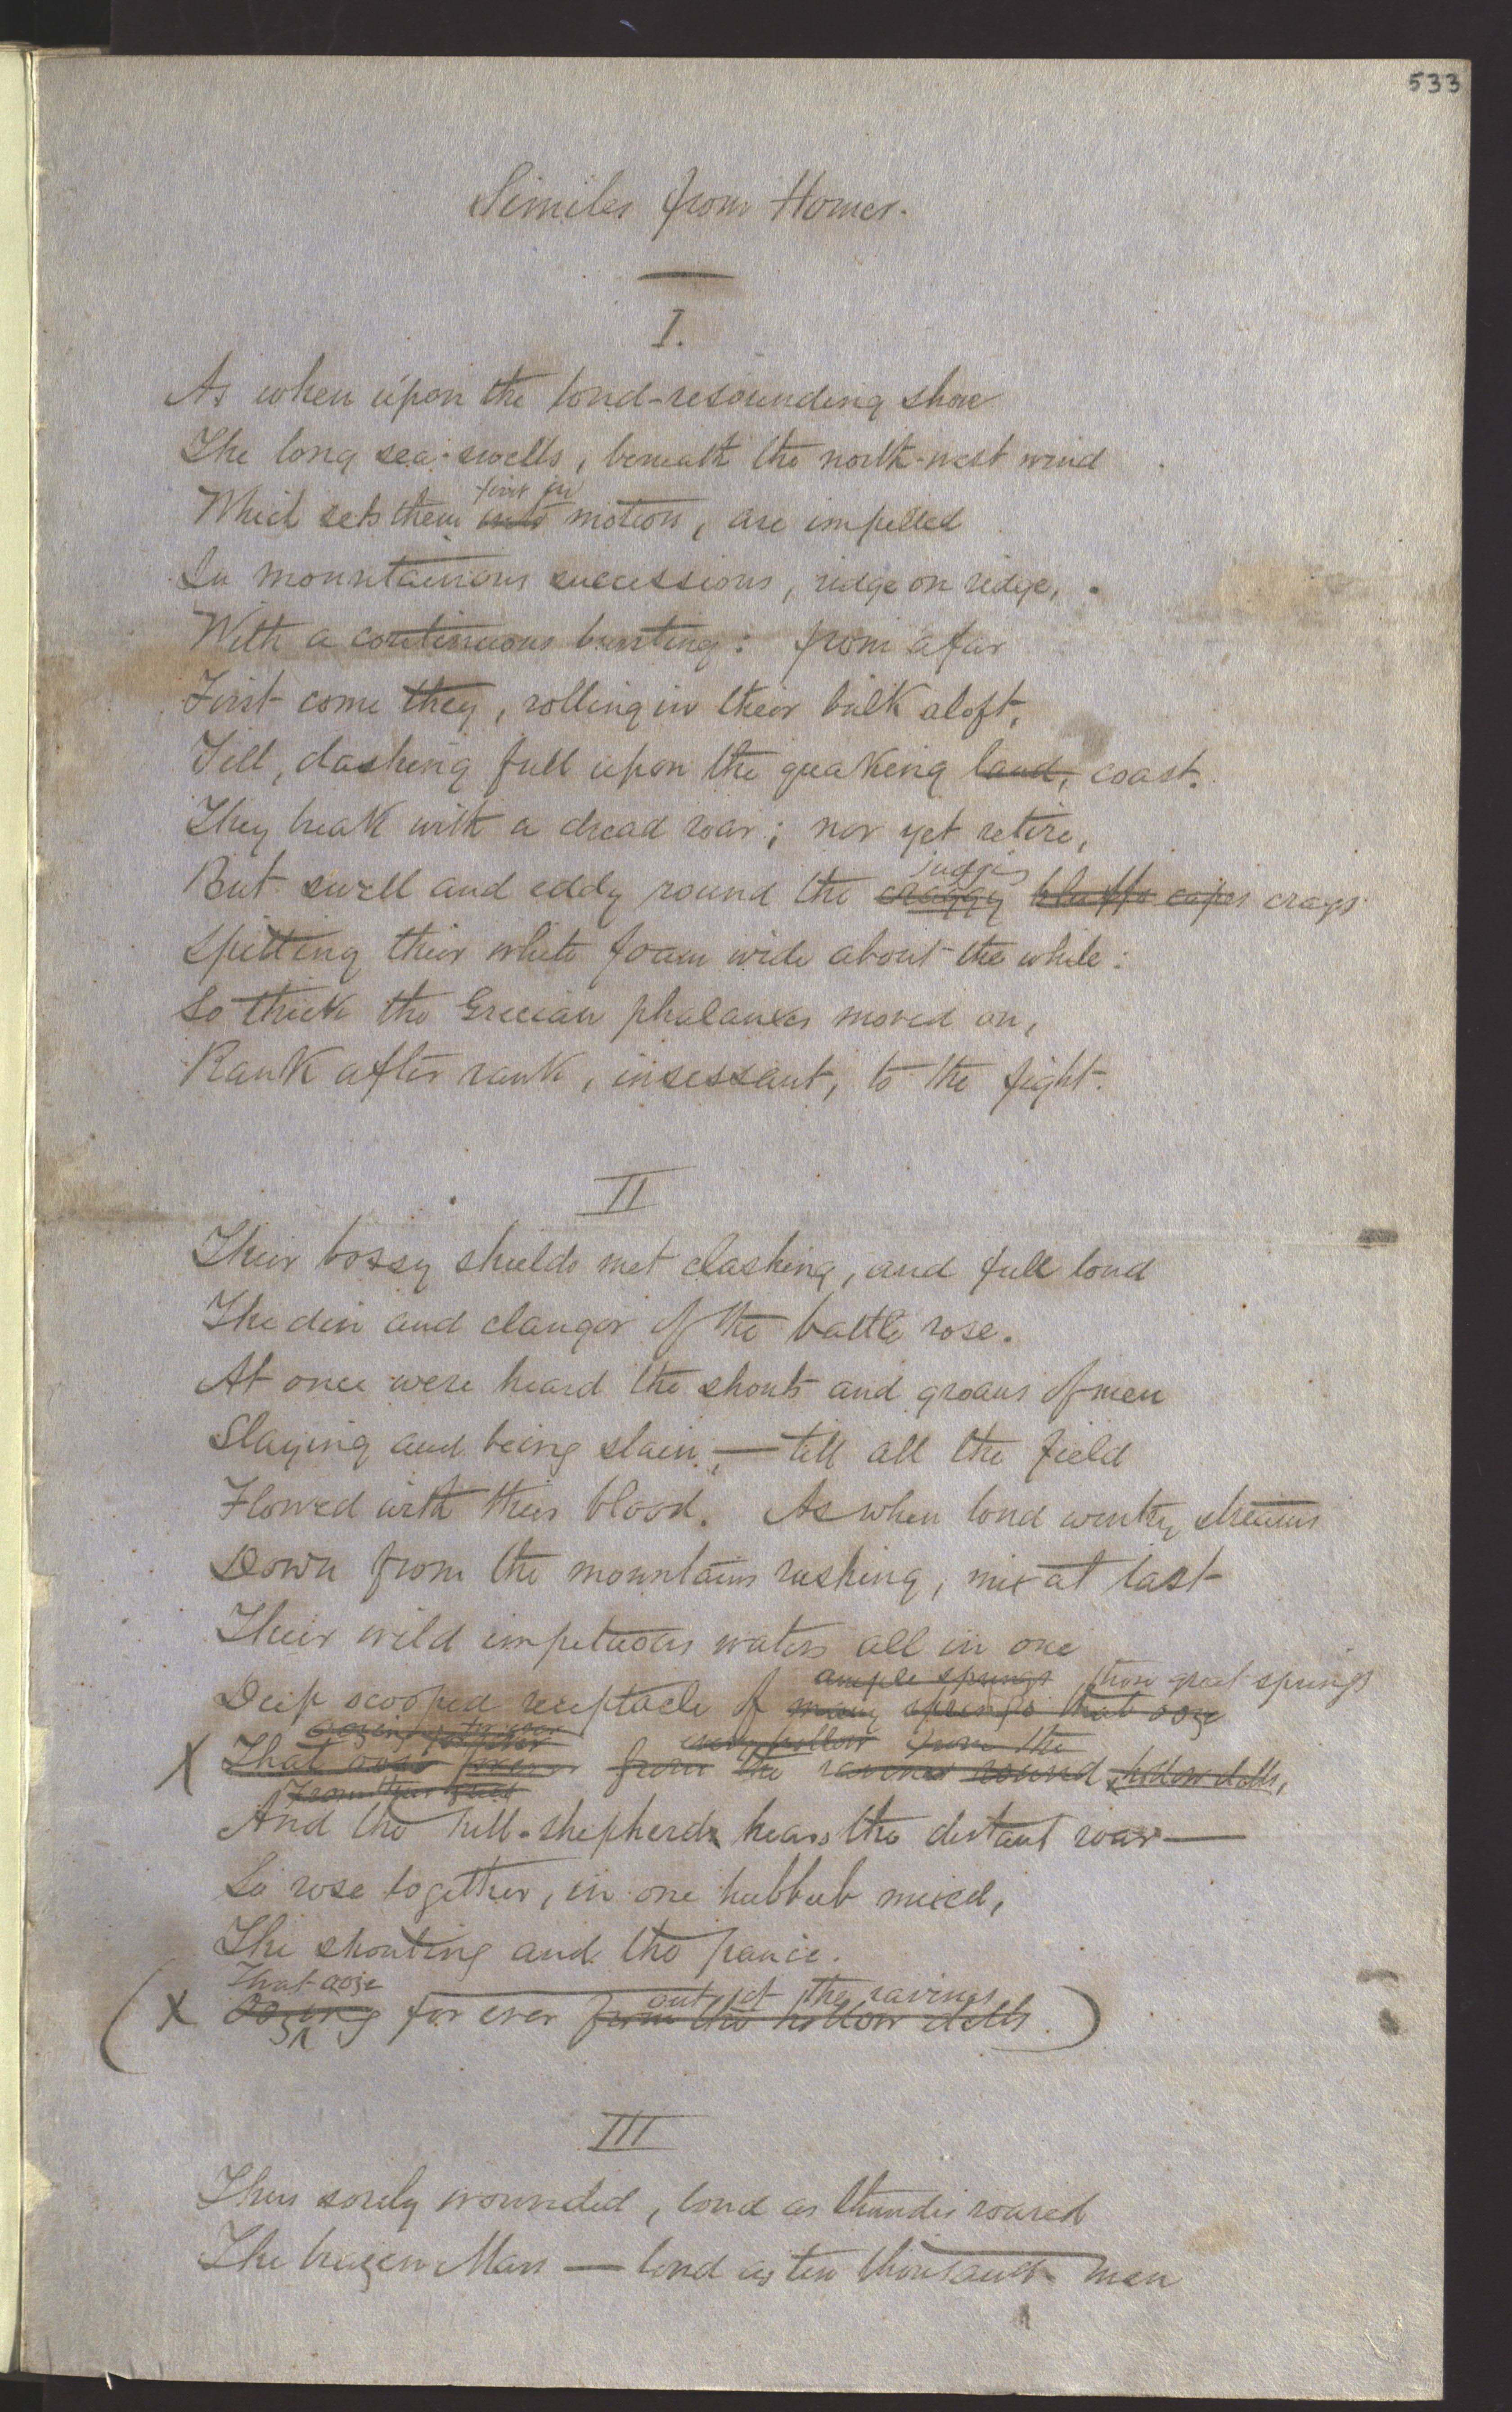 533
Similes from Homer.
I.
As when upon the loud-resounding shore
The long sea-swells, beneath the north-west wind
first in
Which sets them into motion, are impelled
In mountainous successions, ridge on ridge,
With a continuous bursting: from afar
First come they, rolling in their bulk aloft,
Till, dashing full upon the quaking land, coast.
They break with a dread roar; nor yet retire,
jutting
But swell and eddy round the craggy bluffs capes crags
Spitting their white foam wide about the while:
So thick the Grecian phalanxes moved on,
Rank after rank, insessant, to the fight.
II
Their bossy shields met clashing, and full loud
The din and clangor of the battle rose.
At once were heard the shouts and groans of men
Slaying and being slain,—till all the field
Flowed with their blood. As when loud wintry streams
Down from the mountains rushing, mix at last
Their wild impetuous waters all in one
ample springs those great springs
Deep scooped receptacle of many springs that ooze
very hollow from the
X That ooze forever from the ravines round hollow dells,
And the hill-shepherd hears the distant roar—
So rose together, in one hubbub mixed,
The shouting and the panic.
That ooze out of the ravines
(X Oozing for ever from the hollow dells.)
III
Thus sorely wounded, loud as thunder roared
The brazen Mars — loud as ten thousand men